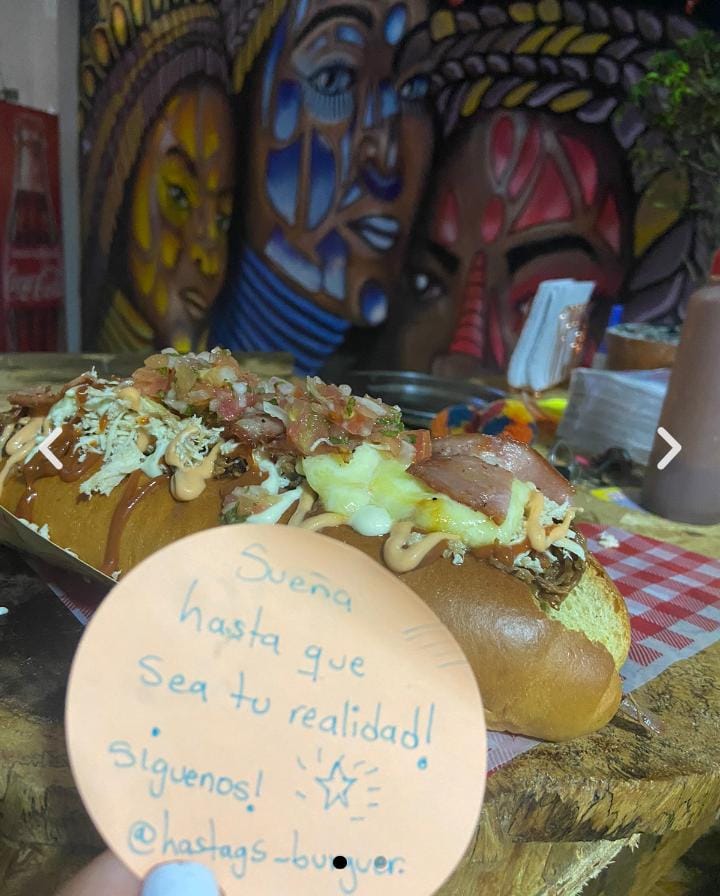 Coca-Cola
Sueña
hasta que
Sea tu realidad!
síguenos!
@hastags_burguer.